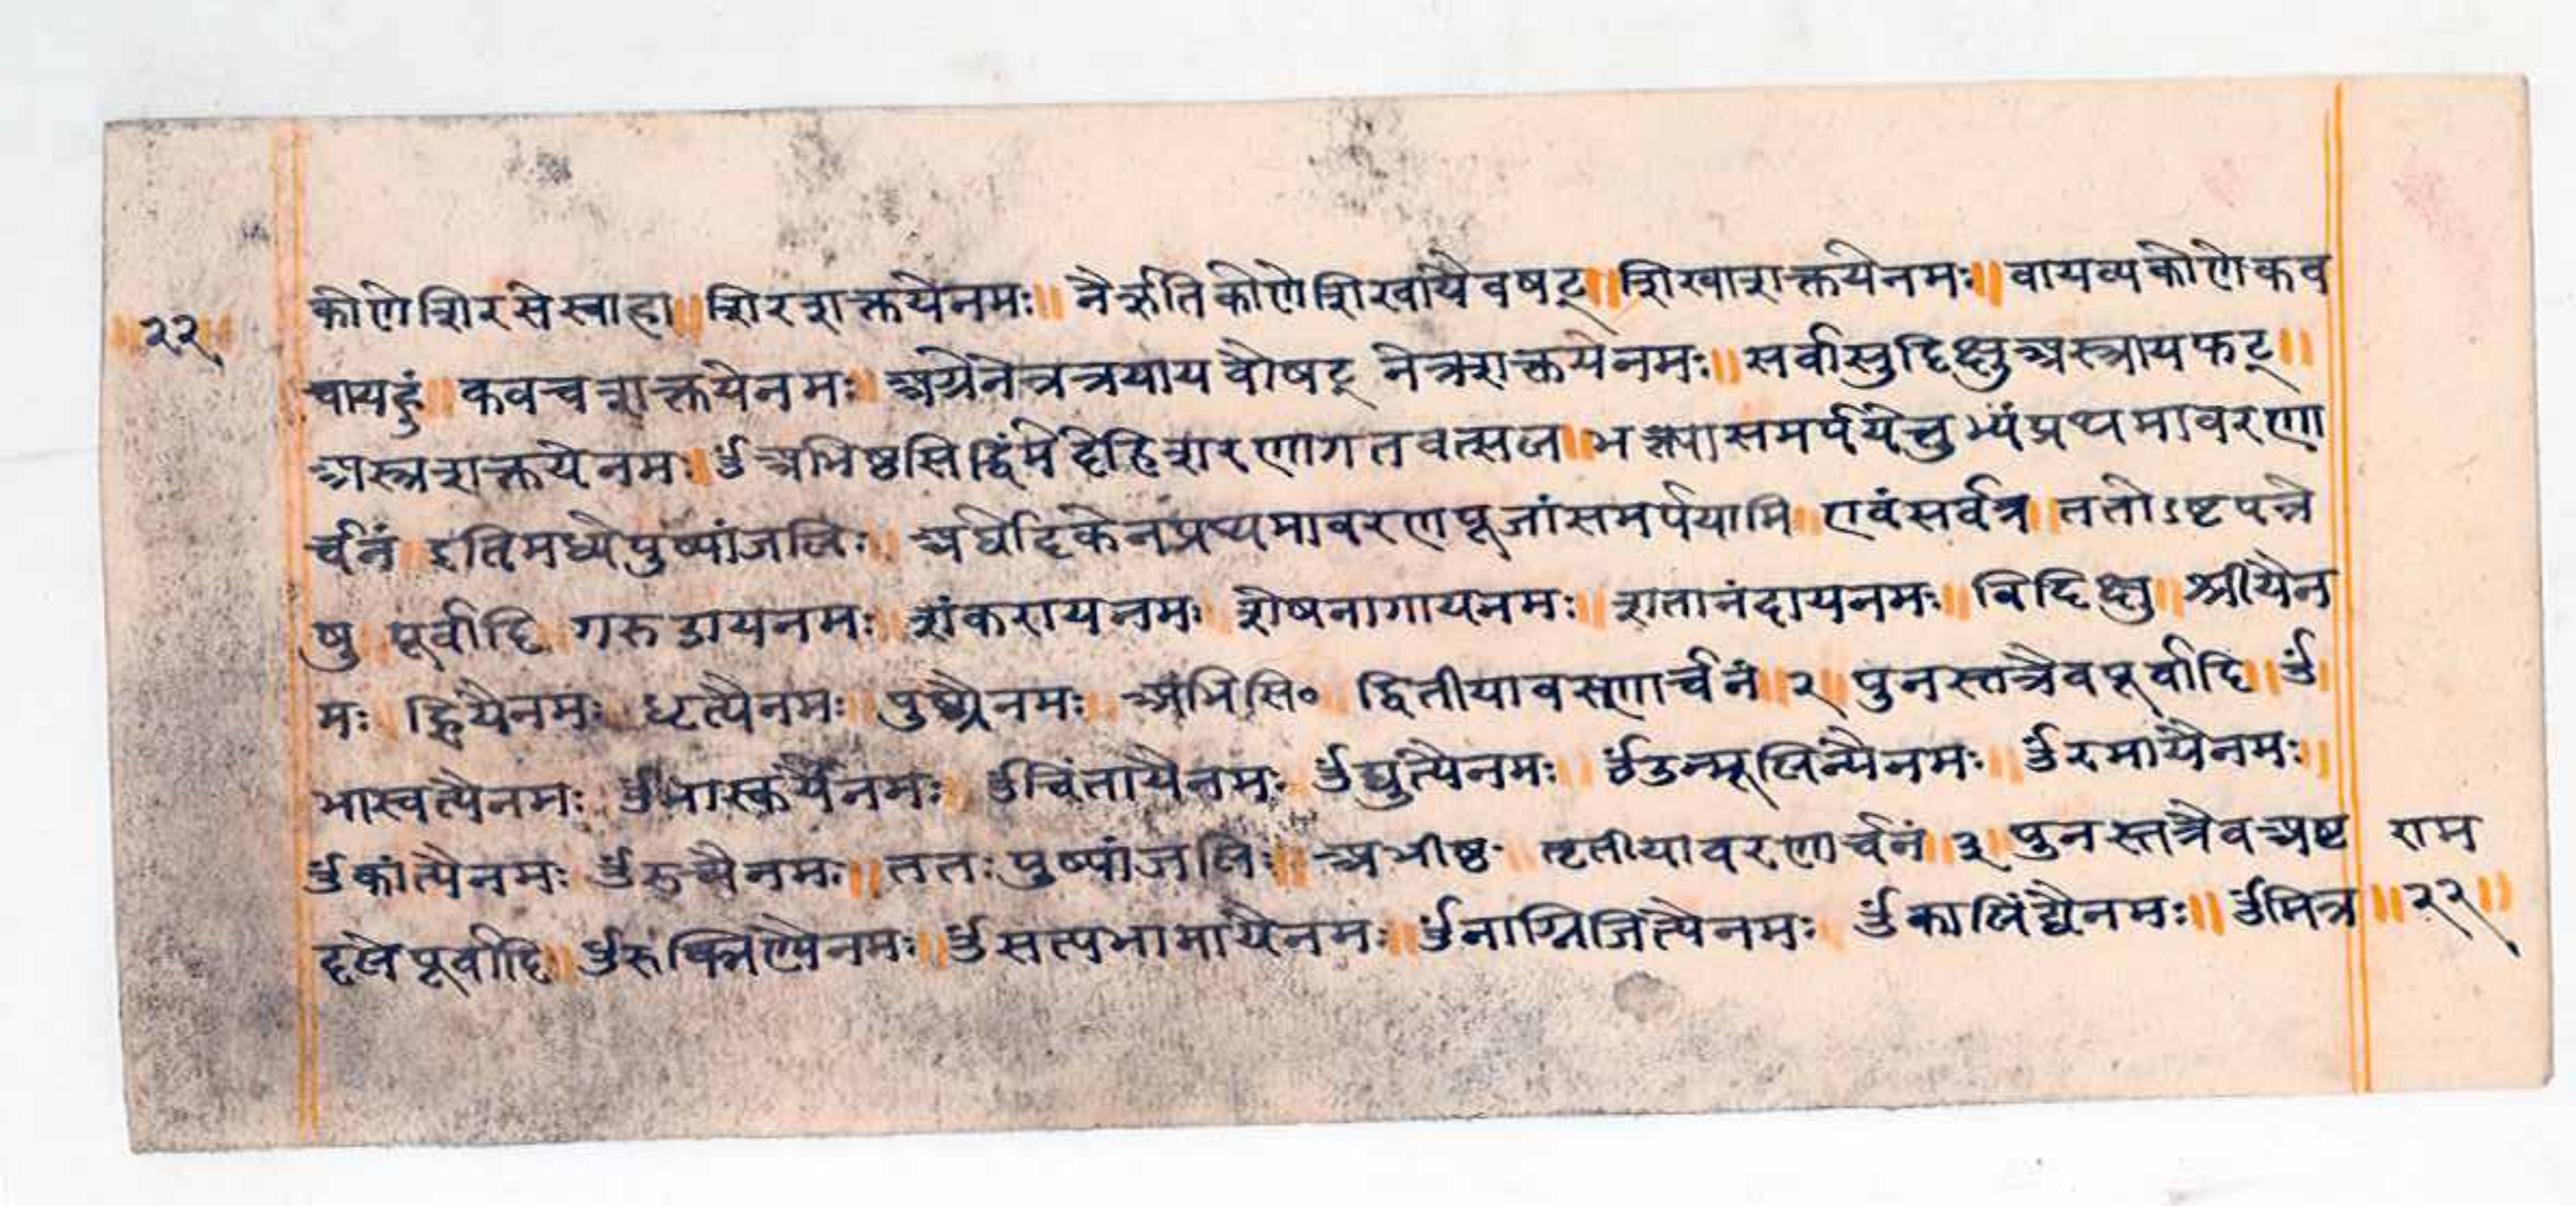 ॥२२॥
कोणेशिरसेस्वाहा॥शिरशक्तयेनमः॥ नैर्ऋतिकोणेशिखायैवषट्॥शिखाशक्तयेनमः॥वायव्यकोणेकव
चायहुं॥ कवचशक्तयेनमः॥अग्रेनेत्रत्रयायवोषट् नेत्रशक्तयेनमः॥सर्वासुदिक्षुअस्त्रायफट्॥
अस्त्रशक्तयेनमः॥ॐअभिष्ठसिद्धिंमेदेहिशरणागतवत्सल॥भक्त्यासमर्पयेत्तुभ्यंप्रथमावरणा
र्चनं॥इतिमध्येपुष्पांजलिः॥ अर्घोदिकेनप्रथमावरणपूजांसमर्पयामि॥एवंसर्वत्र॥ततोऽष्टपत्रे
षु॥पूर्वादि॥गरुडायनमः॥शंकरायनमः॥शेषनागायनमः॥शतानंदायनमः॥विदिक्षु॥श्रीयैन
मः॥ह्रियैनमः॥धृत्यैनमः॥पुष्ट्यैनमः॥अभिसि० द्वितीयावरणार्चनं॥२॥पुनस्तत्रैवपूर्वादि॥ॐ
भास्वत्यैनमः॥ॐभास्कर्यैनमः॥ॐचिंतायैनमः॥ॐद्युत्यैनमः॥ॐउन्मूलिन्यैनमः॥ॐरमायैनमः॥
ॐकांत्यैनमः॥ॐरुच्यैनमः॥ततःपुष्पांजलिः॥अभीष्ठ॰॥तृतीयावरणार्चनं॥३॥पुनस्तत्रैवअष्ट राम
दलेपूर्वादि॥ॐरुंक्मिण्यैनमः॥ॐसत्यभामायैनमः॥ॐनाग्निजित्यैनमः॥ॐकालिंद्यैनमः॥ॐमित्र॥२२॥